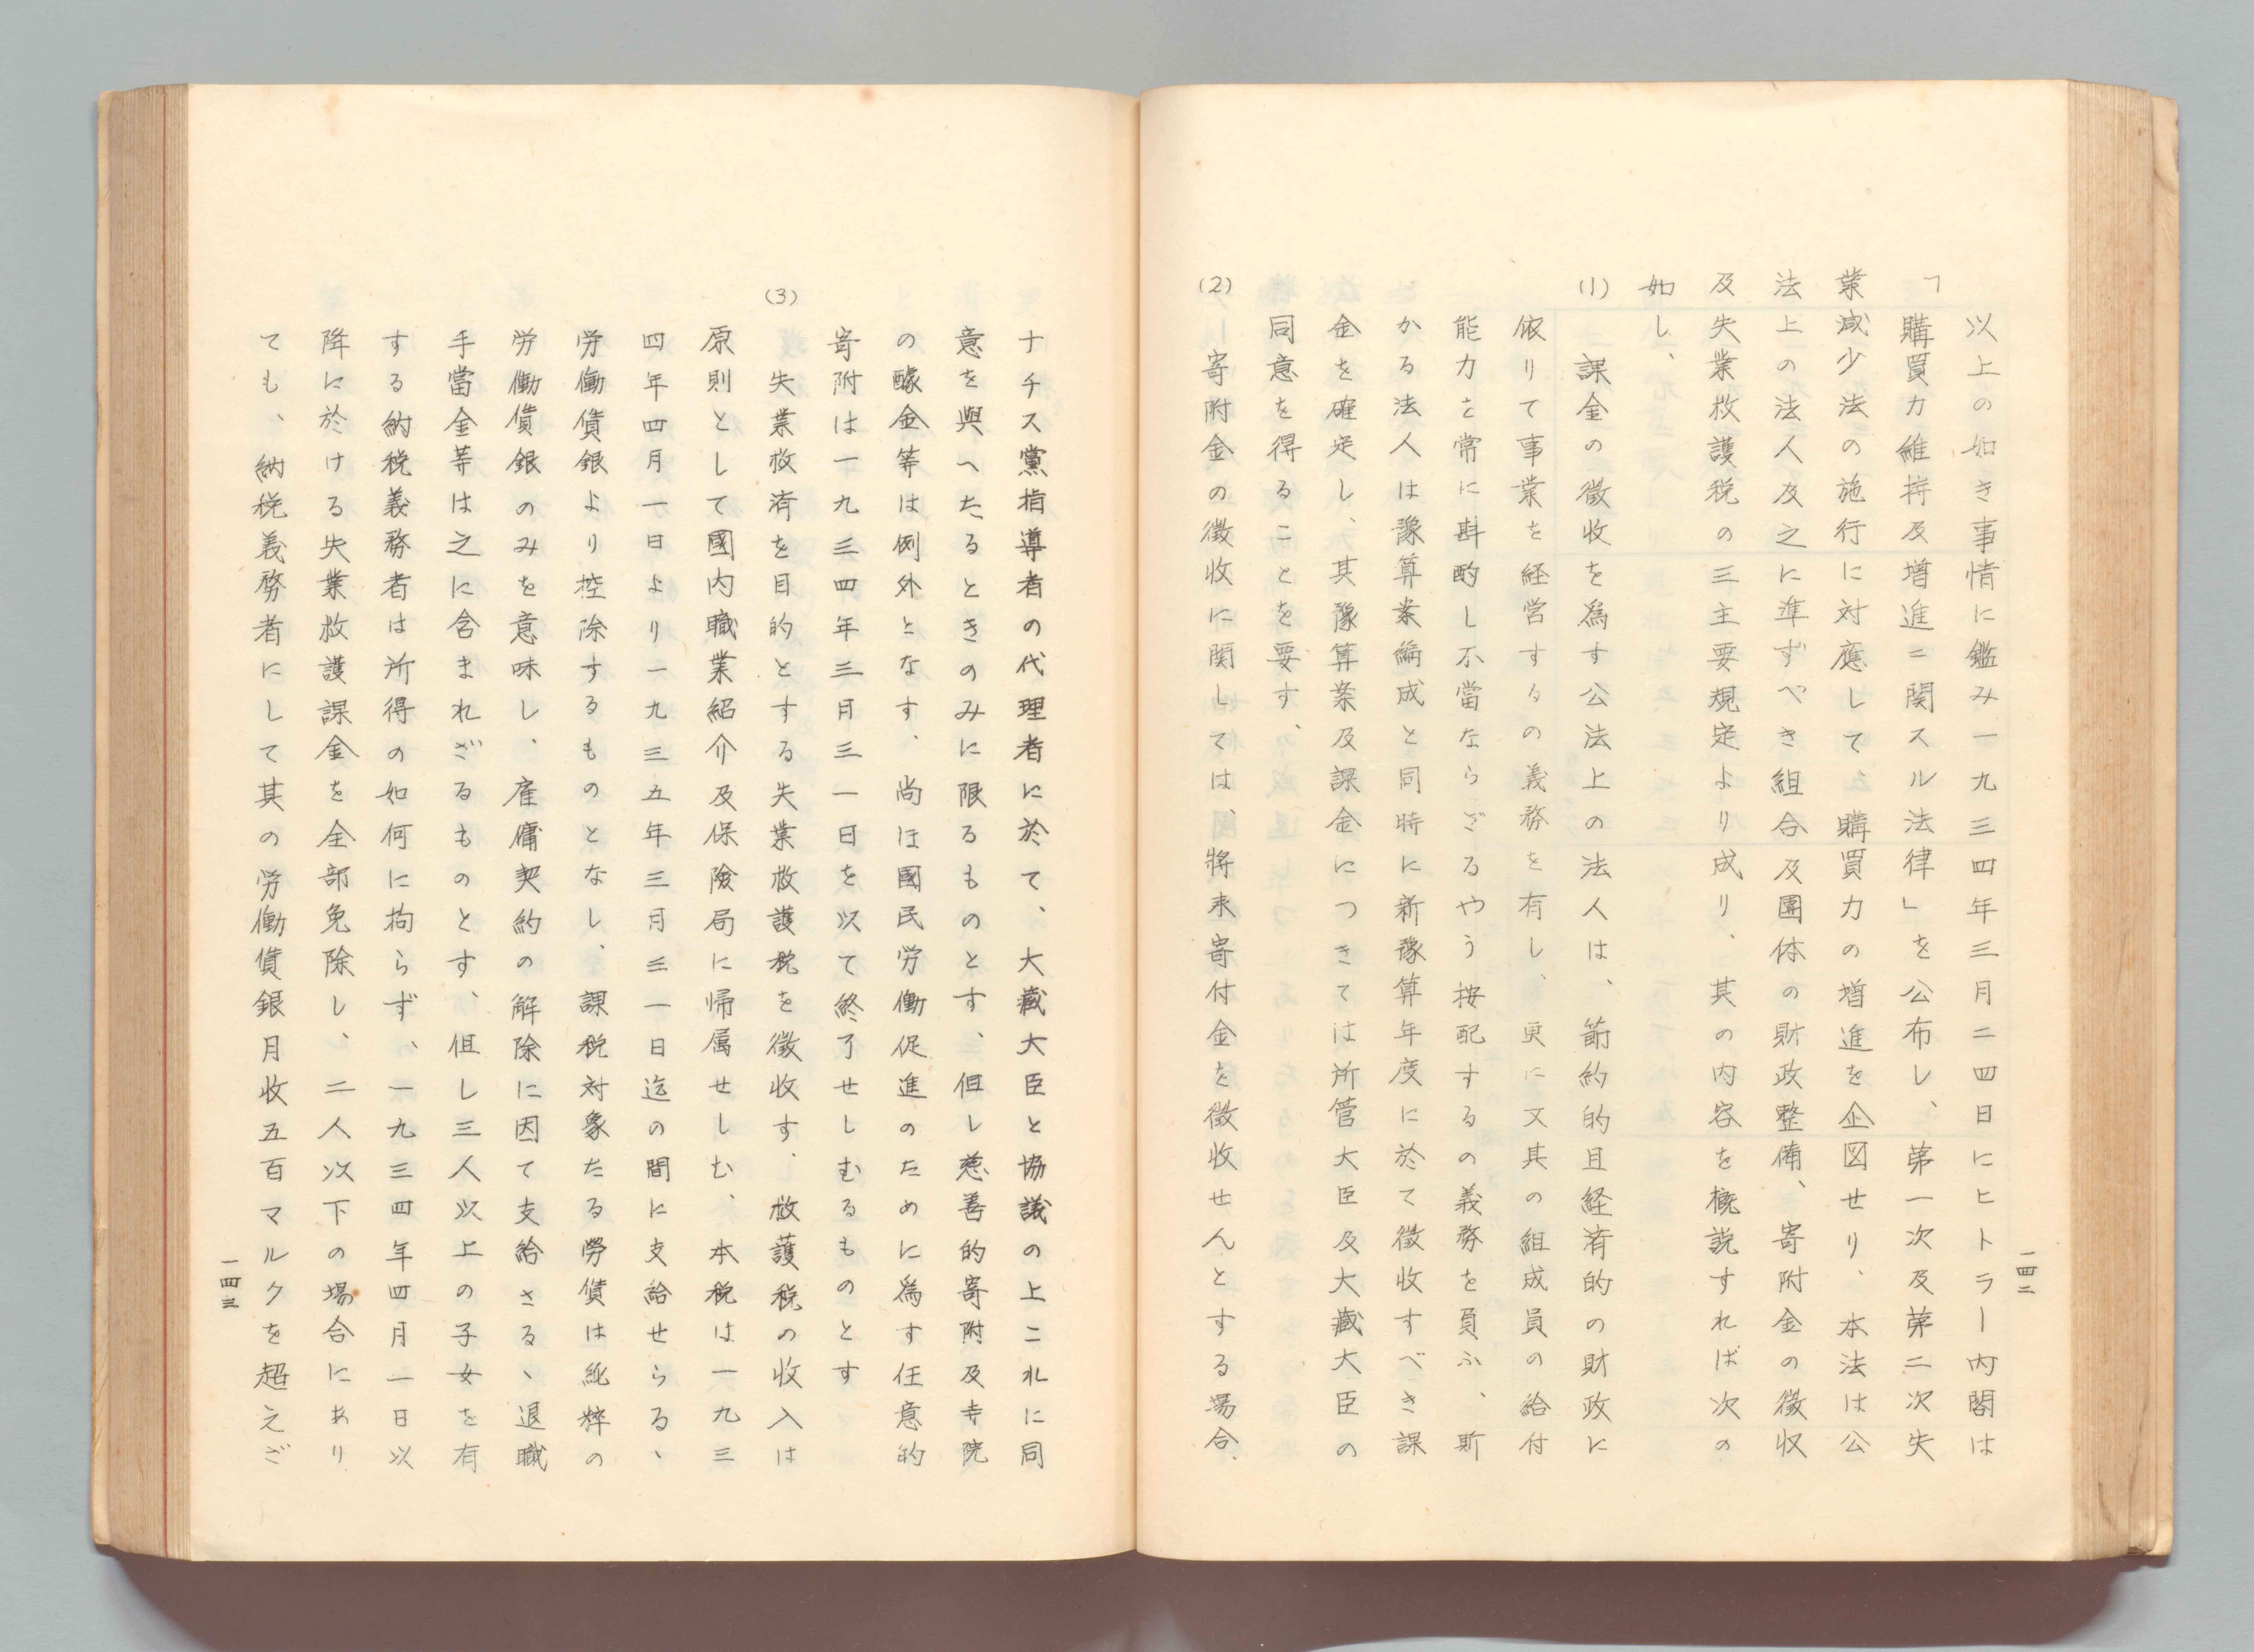 以上の如き事情に鑑み一九三四年三月二四日にヒトラー内閣は
「購買力維持及増進ニ関スル法律」を公布し、第一次及第二次失
業減少法の施行に対應して、購買力の増進を企図せり、本法は公
法上の法人及之に準ずべき組合及團体の財政整備、寄附金の徴収
及失業救護税の三主要規定より成り、其の内容を概説すれば次の
如し、
(1) 課金の徴收を爲す公法上の法人は、節約的且経済的の財政に
依りて事業を経営するの義務を有し、更に又其の組成員の給付
能力を常に斟酌し不當ならざるやう按配するの義務を負ふ、斯
かる法人は豫算案編成と同時に新豫算年度に於て徴收すべき課
金を確定し、其豫算案及課金につきては所管大臣及大藏大臣の
同意を得ることを要す、
(2) 寄附金の徴收に関しては、將来寄付金を徴收せんとする場合、
一四二
ナチス黨指導者の代理者に於て、大藏大臣と協議の上これに同
意を與へたるときのみに限るものとす、但し慈善的寄附及寺院
の醵金等は例外となす、尚ほ國民労働促進のために爲す任意的
寄附は一九三四年三月三一日を以て終了せしむるものとす
(3) 失業救済を目的とする失業救護税を徴收す、救護税の收入は
原則として國内職業紹介及保險局に帰属せしむ、本税は一九三
四年四月一日より一九三五年三月三一日迄の間に支給せらる、
労働賃銀より控除するものとなし、課税対象たる勞賃は純粋の
労働賃銀のみを意味し、雇傭契約の解除に因て支給さる、退職
手當金等は之に含まれざるものとす、但し三人以上の子女を有
する納税義務者は所得の如何に拘らず、一九三四年四月一日以
降に於ける失業救護課金を全部免除し、二人以下の場合にあり
ても、納税義務者にして其の労働賃銀月收五百マルクを超えざ
一四三